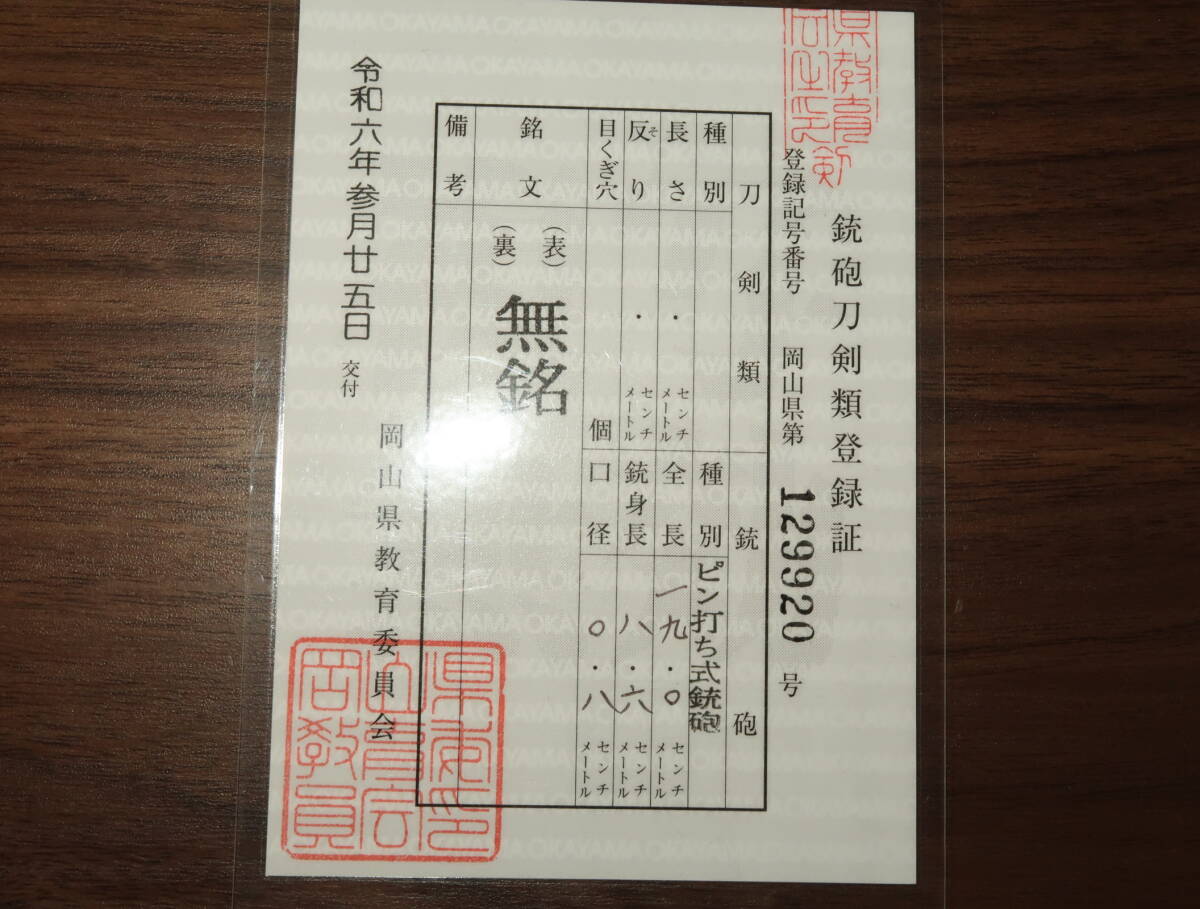 銃砲刀剣類登録証
登録記号番号 岡山県第 129920 号
刀剣類
銃砲
種別
長さ ・ センチメートル
反り ・ センチメートル
そ
目くぎ穴 個
種別 ピン打ち式銃砲
全長 一九・〇 センチメートル
銃身長 八・六 センチメートル
口径 〇・八 センチメートル
銘文 (表)
(裏)
無銘
備考
令和六年参月廿五日 交付
岡山県教育委員会